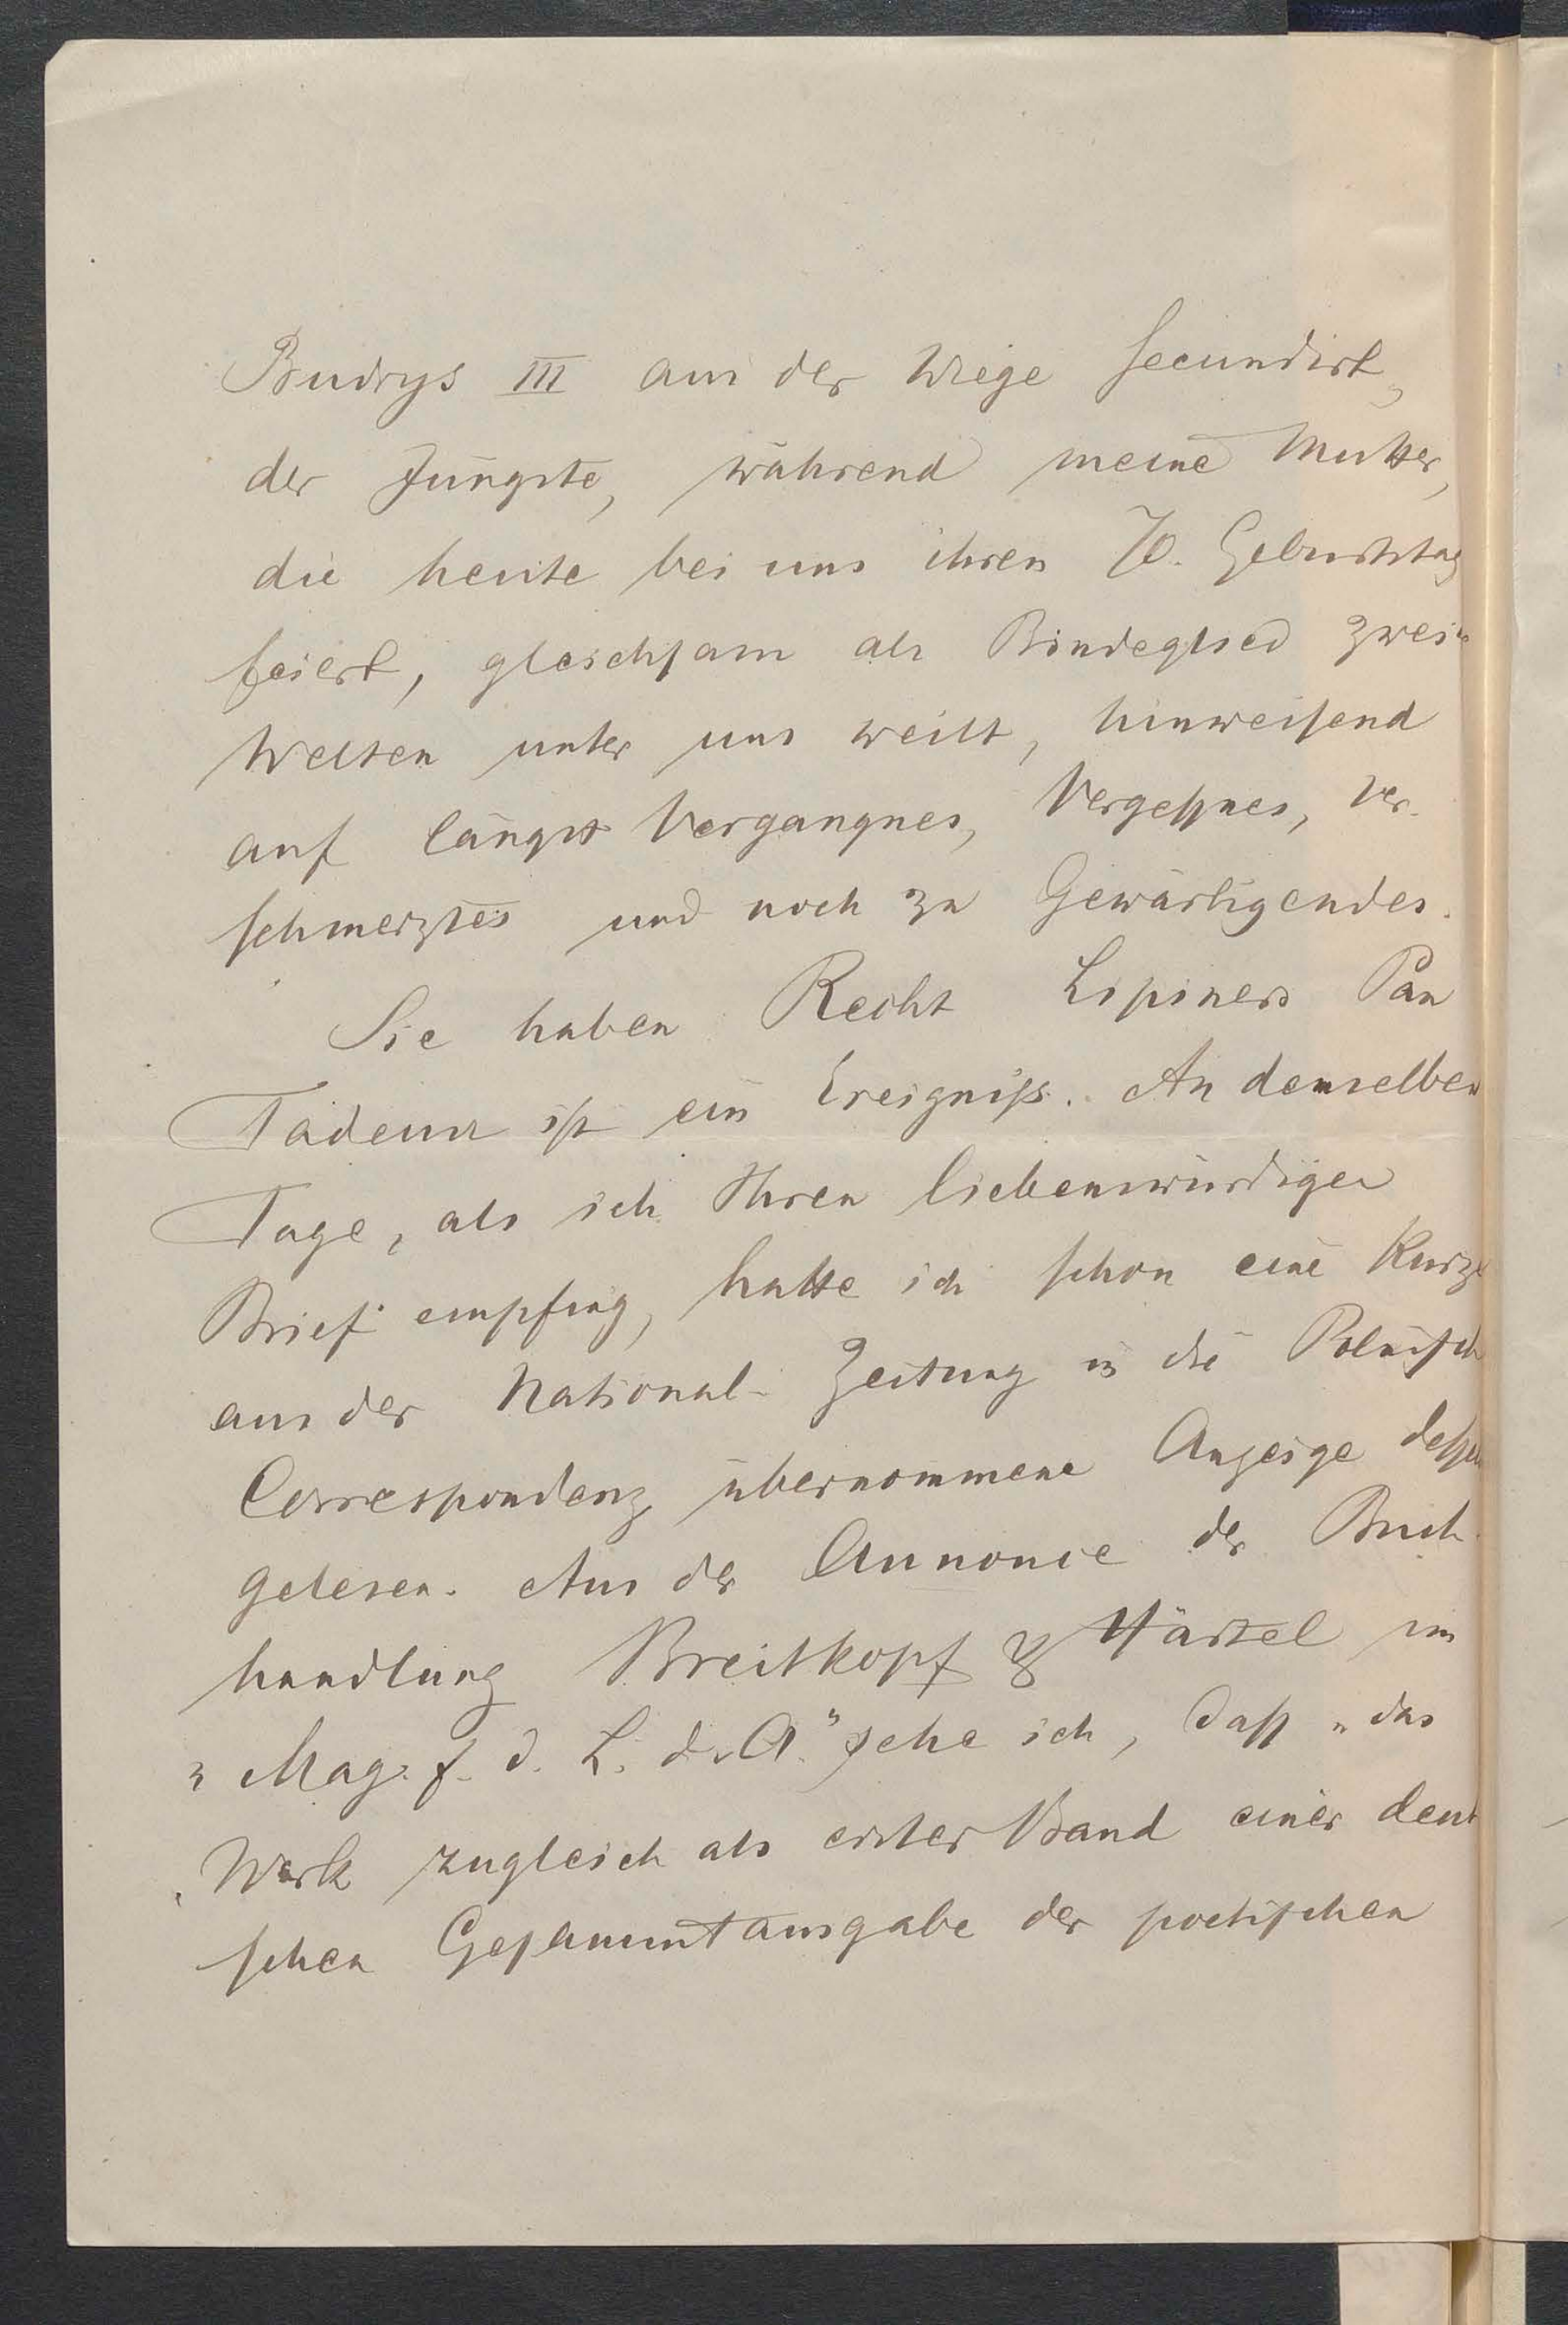 Budrys III aus der Wiege secundirt,
der Jüngste, während meine Mutter,
die heute bei uns ihren 70. Geburtstag
feiert, gleichsam als Bindeglied zweier
Welten unter uns weilt, hinweisend
auf längst Vergangnes, Vergessnes, Ver-
schmerztes und noch zu Gewärtigendes.
Sie haben Recht Lipiners Pan
Tadeusz ist ein Ereigniss. An demselben
Tage, als ich Ihren liebenswürdigen
Brief empfing, hatte ich schon eine kurze
aus der National-Zeitung in die Polnische
Correspondenz übernommene Anzeige dessen
gelesen. Aus der Annonce der Buch-
handlung Breitkopf & Härtel im
„Mag. f. d. L. d. A." sehe ich, dass „das
Werk zugleich als erster Band einer deut
schen Gesammtausgabe der poetischen